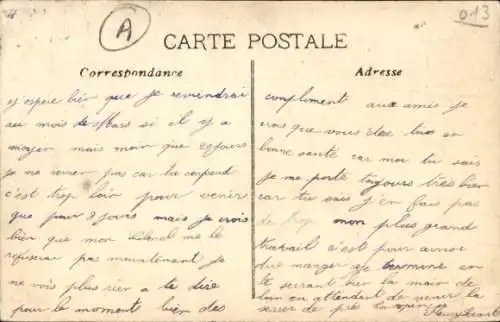 A
013
CARTE POSTALE
Correspondance
Adresse
j'espère bien que je reviendrai
au mois de Mars si il y a
moyen mais moin que 20 jours
je ne revien pas car tu comprend
c'est trop loin pour venir
que pour 8 jours mais je crois
bien que mon Colonel me le
refusera pas maintenant je
ne vois plus rien a te dire
pour le moment bien des
compliment aux amis je
crois que vous êtes tous en
bonne santé car moi tu sais
je me porte toujours très bien
car tu sais j'en fais pas
de trop mon plus grand
travail c'est pour
manger je termine en
te serrant bien la main de
loin en attendant de venir la
serrer de près